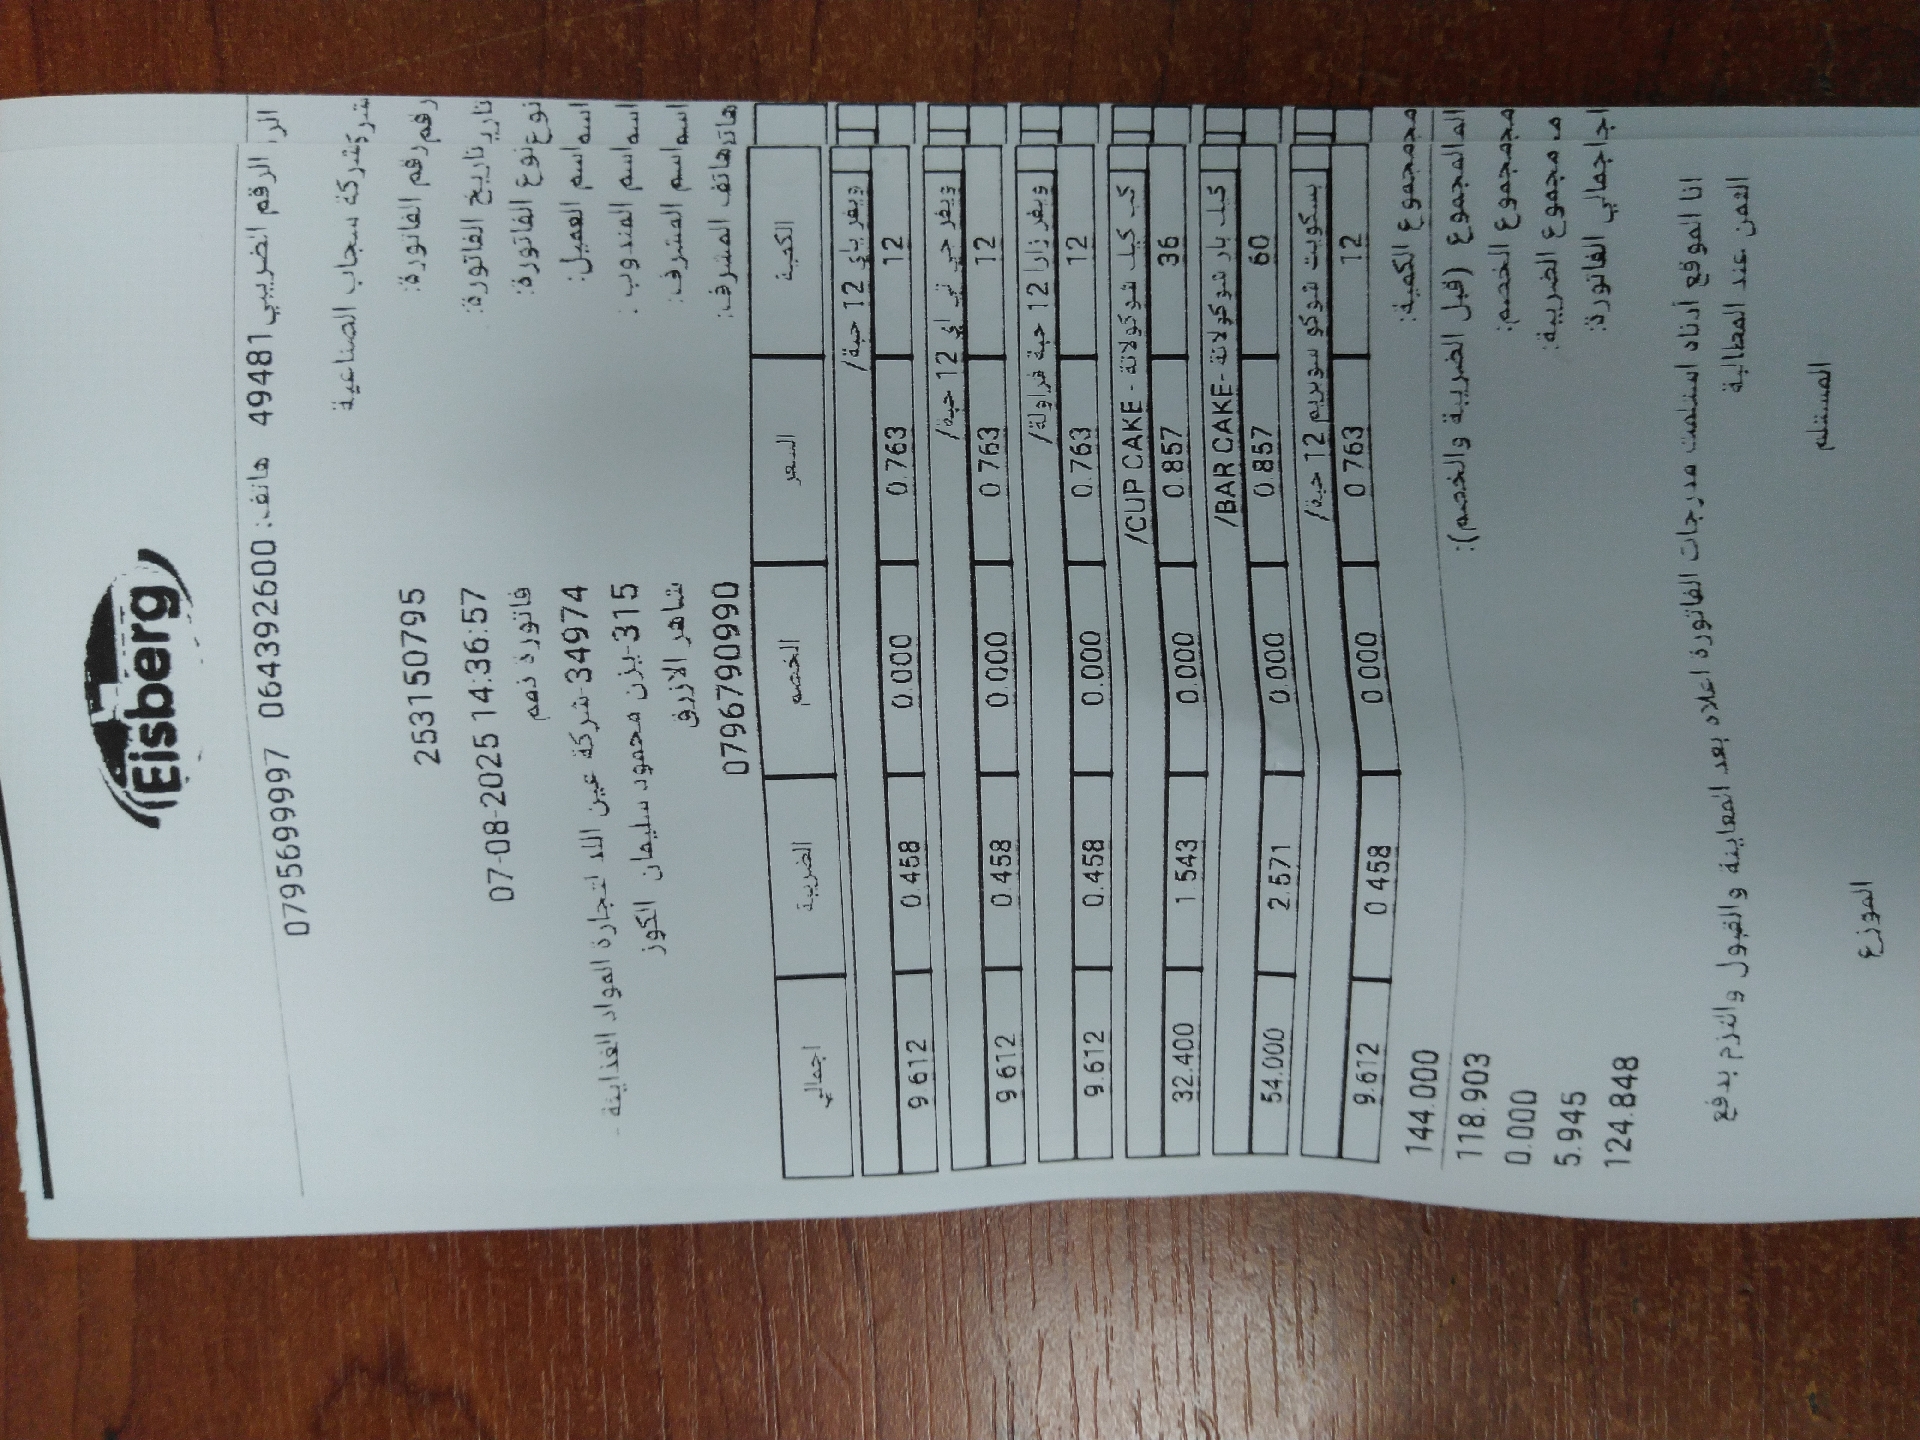 Eisberg
الرقم الضريبي 49481 هاتف: 064392600 0795699997
شركة سجاب الصناعية
رقم الفاتورة: 253150795
تاريخ الفاتورة: 07-08-2025 14:36:57
نوع الفاتورة: فاتورة ذمم
اسم العميل: 34974-شركة عين اللد لتجارة المواد الغذايئة -
اسم المندوب: 315-يزن محمود سليمان الكوز
اسم المشرف: شاهر الازرق
هاتف المشرف: 0796790990
الكمية السعر الخصم الضريبة اجمالي
ويفر ياي 12 حبة/
12 0.763 0.000 0.458 9.612
ويفر جي تي اي 12 حبة/
12 0.763 0.000 0.458 9.612
ويفر زارا 12 حبة فراولة/
12 0.763 0.000 0.458 9.612
كب كيك شوكولاتة - CUP CAKE/
36 0.857 0.000 1.543 32.400
كيك بار شوكولاتة -BAR CAKE/
60 0.857 0.000 2.571 54.000
بسكويت شوكو سوبريم 12 حبة/
12 0.763 0.000 0.458 9.612
مجموع الكمية: 144.000
المجموع (قبل الضريبة والخصم): 118.903
مجموع الخصم: 0.000
مجموع الضريبة: 5.945
اجمالي الفاتورة: 124.848
انا الموقع أدناه استلمت مدرجات الفاتورة اعلاه بعد المعاينة والقبول والتزم بدفع
الثمن عند المطالبة
المستلم
الموزع